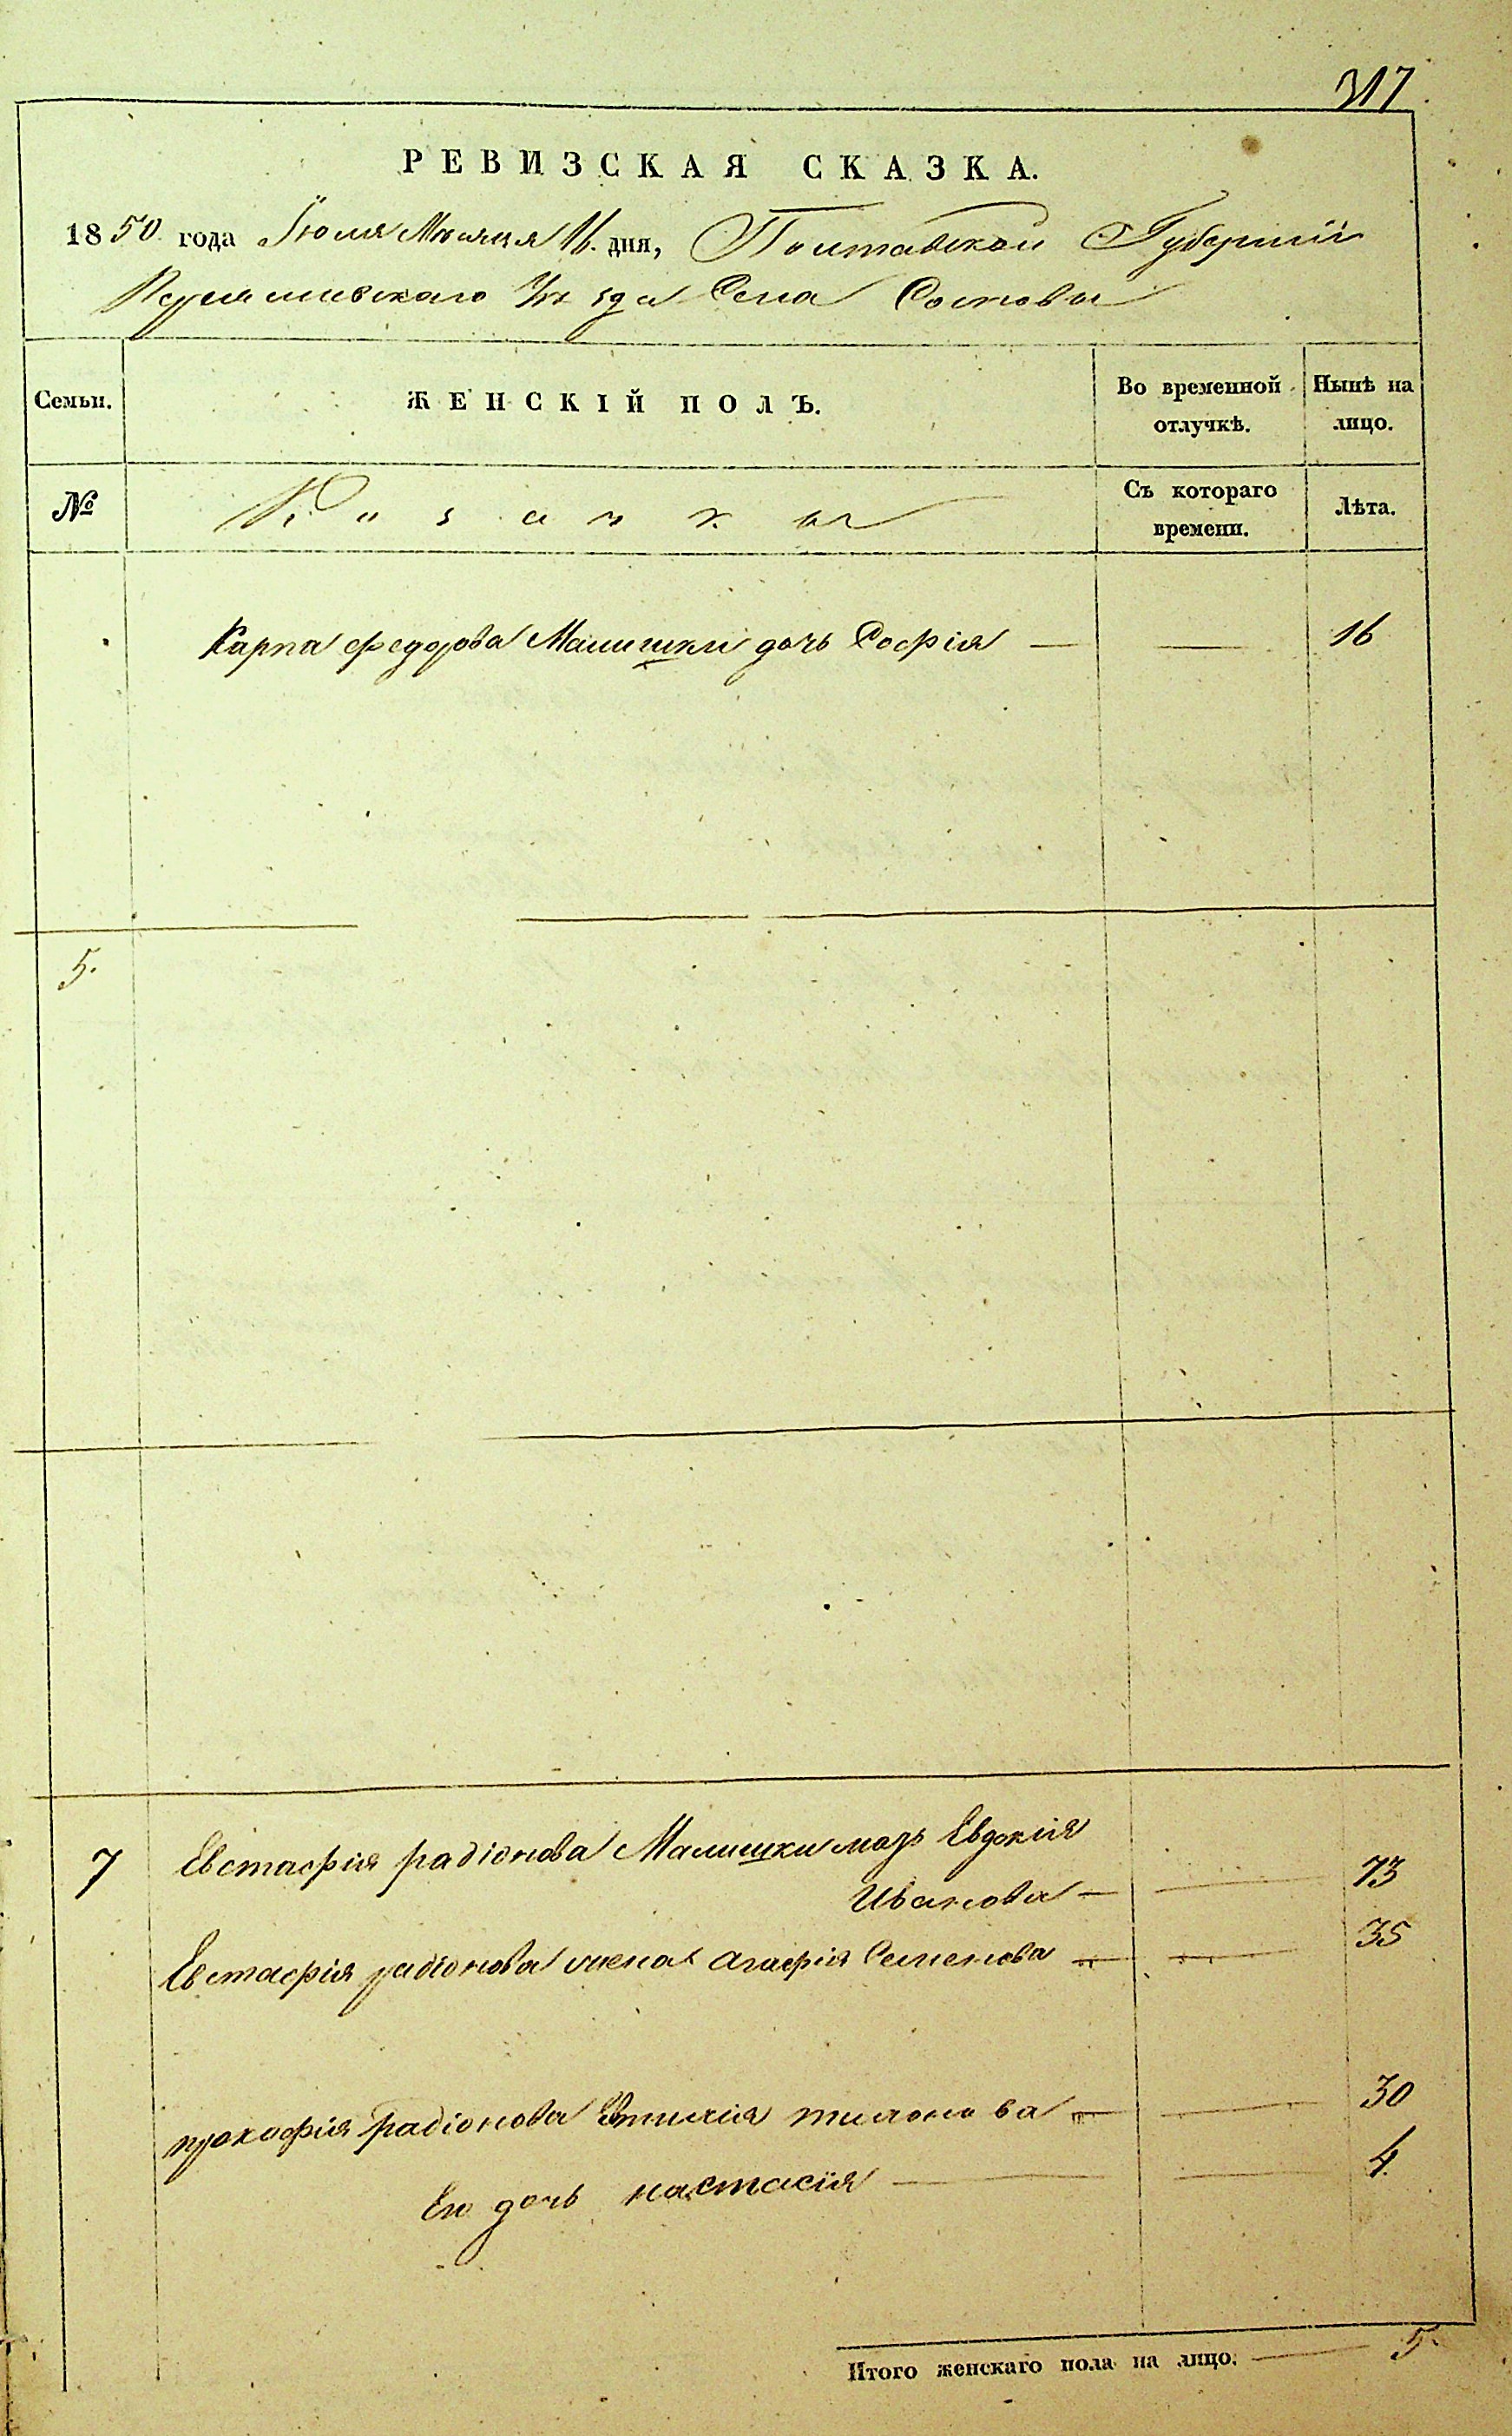 317
РЕВИЗСКАЯ СКАЗКА.
1850 года Іюля Мѣсяца 16. дня, Полтавской Губерніи
Переяславскаго Уѣзда Села Сосновы
Семьи. ЖЕНСКІЙ ПОЛЪ. Во временной отлучкѣ. Нынѣ на лицо.
№ Козачки Съ котораго времени. Лѣта.
Карпа Федорова Малишки дочь Софія — — 16
5.
7 Евстафія радіонова Малишки мать Евдокія
Иванова — — 73
Евстафія радіонова жена агафія Семенова — — 35
прокофія радіонова тихонова — — 30
Его дочь настасія — — 4.
Итого женскаго пола на лицо. — 5.